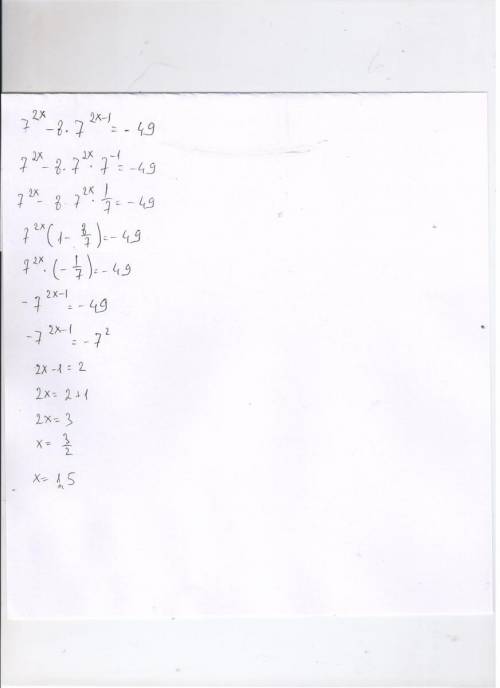 7^{2x} - 8 · 7^{2x-1} = - 49
7^{2x} - 8 · 7^{2x} · 7^{-1} = -49
7^{2x} - 8 · 7^{2x} · \frac{1}{7} = -49
7^{2x} (1 - \frac{8}{7}) = - 49
7^{2x} · (- \frac{1}{7}) = - 49
- 7^{2x-1} = - 49
- 7^{2x-1} = - 7^{2}
2x - 1 = 2
2x = 2 + 1
2x = 3
x = \frac{3}{2}
x = 1,5